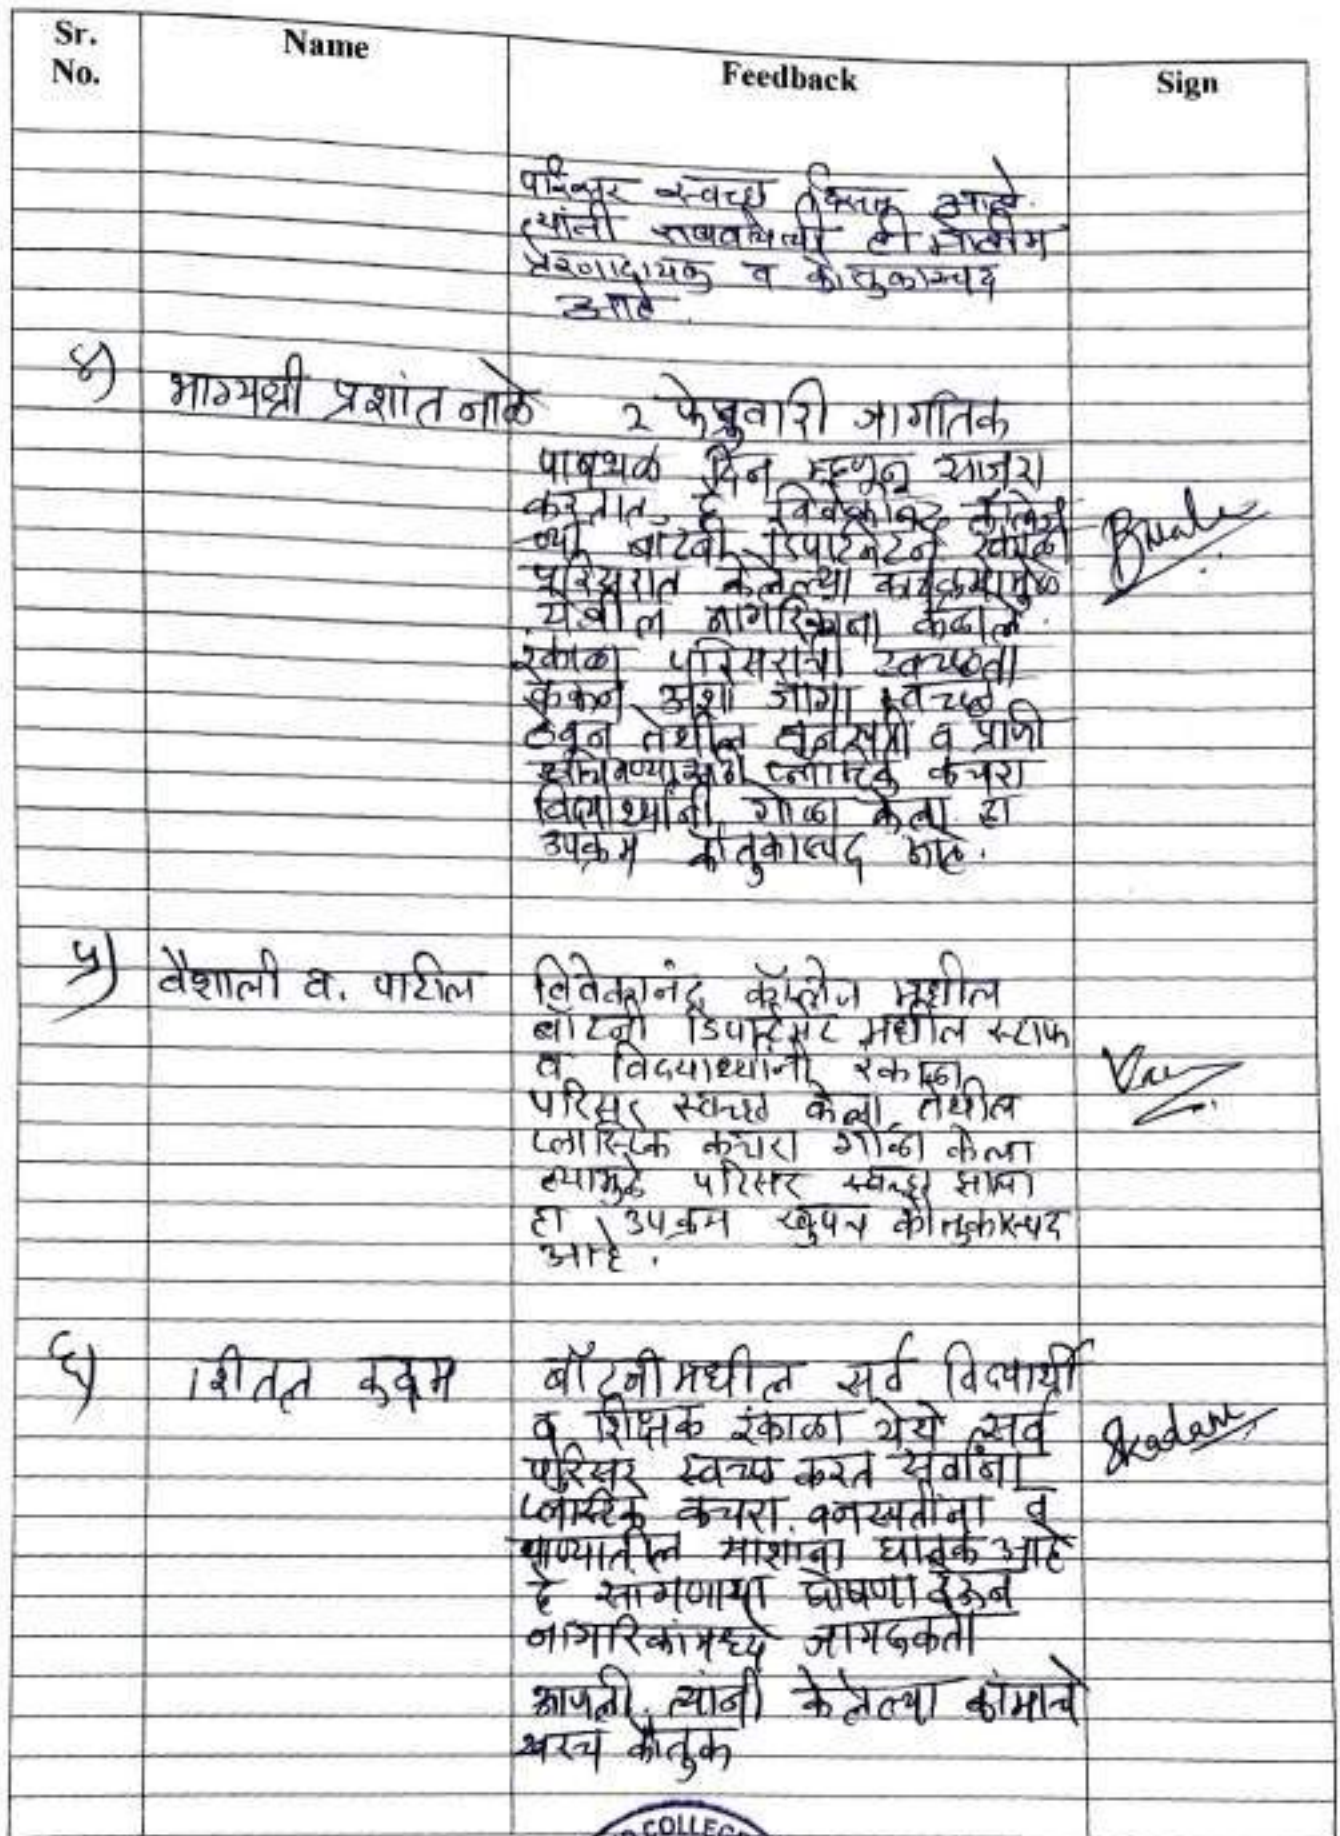 Sr. No. Name Feedback Sign
परिसर स्वच्छ दिसत आहे.
त्यांनी राबवलेली ही मोहीम
प्रेरणादायक व कौतुकास्पद
आहे.
४) भाग्यश्री प्रशांत नाळे २ फेब्रुवारी जागतिक
पाणथळ दिन म्हणून साजरा
करतात. हे विवेकानंद कॉलेज
च्या बॉटनी डिपार्टमेंटने रंकाळा
परिसरात केलेल्या कार्यक्रमामुळे
येथील नागरिकांना कळाले.
रंकाळा परिसराची स्वच्छता
करून अशा जागा स्वच्छ
ठेवून तेथील वनस्पती व प्राणी
प्लास्टिक कचरा
विद्यार्थ्यांनी गोळा केला. हा
उपक्रम कौतुकास्पद आहे.
५) वैशाली व. पाटील विवेकानंद कॉलेज मधील
बॉटनी डिपार्टमेंट मधील स्टाफ
व विद्यार्थ्यांनी रंकाळा
परिसर स्वच्छ केला. तेथील
प्लास्टिक कचरा गोळा केला
त्यामुळे परिसर स्वच्छ झाला
हा उपक्रम खुपच कौतुकास्पद
आहे.
६) शितल कदम बॉटनीमधील सर्व विद्यार्थी
व शिक्षक रंकाळा येथे सर्व
परिसर स्वच्छ करत सर्वांना
प्लास्टिक कचरा वनस्पतींना व
पाण्यातील माशांना घातक आहे
हे सांगणाऱ्या घोषणा देऊन
नागरिकांमध्ये जागरूकता
आणली. त्यांनी केलेल्या कामाचे
खरच कौतुक
COLLEG